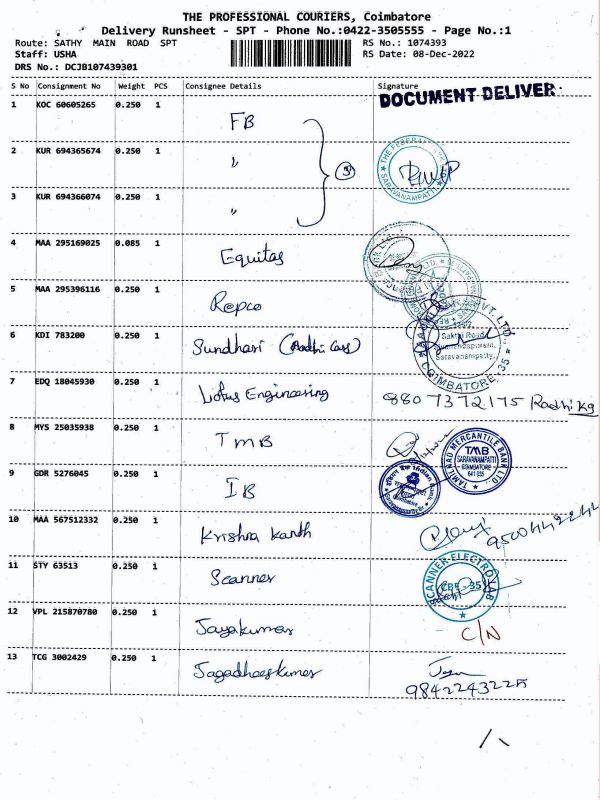 THE PROFESSIONAL COURIERS, Coimbatore
Delivery Runsheet - SPT - Phone No.:0422-3505555 - Page No.:1
Route: SATHY MAIN ROAD SPT RS No.: 1074393
Staff: USHA RS Date: 08-Dec-2022
DRS No.: DCJB107439301
S No Consignment No Weight PCS Consignee Details Signature
DOCUMENT DELIVER
1 KOC 60605265 0.250 1 FB
2 KUR 694365674 0.250 1 〃 ③
SARAVANAMPATTI
3 KUR 694366074 0.250 1 〃
4 MAA 295169025 0.085 1 Equitas
5 MAA 295396116 0.250 1 Repco
6 KDI 783200 0.250 1 Sundhari
Sakthi Road,
Saravanampatty,
COIMBATORE-35
7 EDQ 18045930 0.250 1 Lotus Engineering 8807372175 Radhi kg
8 MYS 25035938 0.250 1 TMB
TAMILNAD MERCANTILE BANK LTD.
TMB
SARAVANAMPATTI
COIMBATORE
641 035
9 GDR 5276045 0.250 1 IB
10 MAA 567512332 0.250 1 Krishna Kanth
11 STY 63513 0.250 1 Scanner
SCANNER-ELECTROLAB
CBE-35
12 VPL 215870780 0.250 1 Jayakumar C/N
13 TCG 3002429 0.250 1 Jagadheeskumar
9842243225